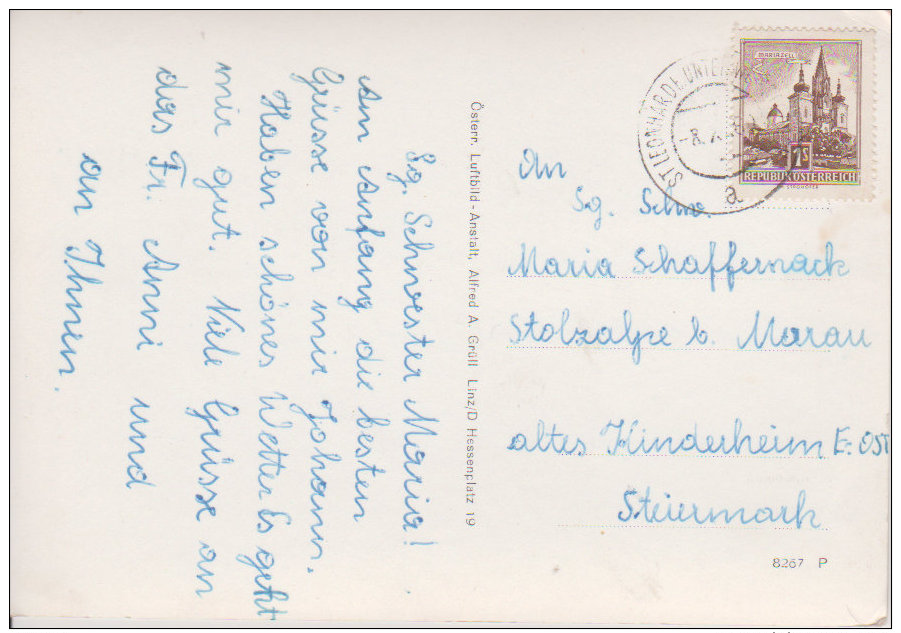 Sg. Schwester Maria!
Am Anfang die besten
Grüsse von mir Johann.
Haben schönes Wetter Es geht
mir gut. Viele Grüsse an
das Fr. Anni und
an Ihnen.
Österr. Luftbild-Anstalt, Alfred A. Grüll Linz/D Hessenplatz 19
MARIAZELL
1S
REPUBLIK ÖSTERREICH
ST LEONHARD
a
An
Sg. Schw.
Maria Schaffernack
Stolzalpe b. Murau
altes Kinderheim E. OST
Steiermark
8267 P